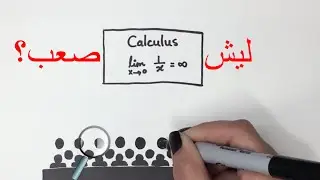 ليش صعب؟
Calculus
lim 1/x = ∞
x→0